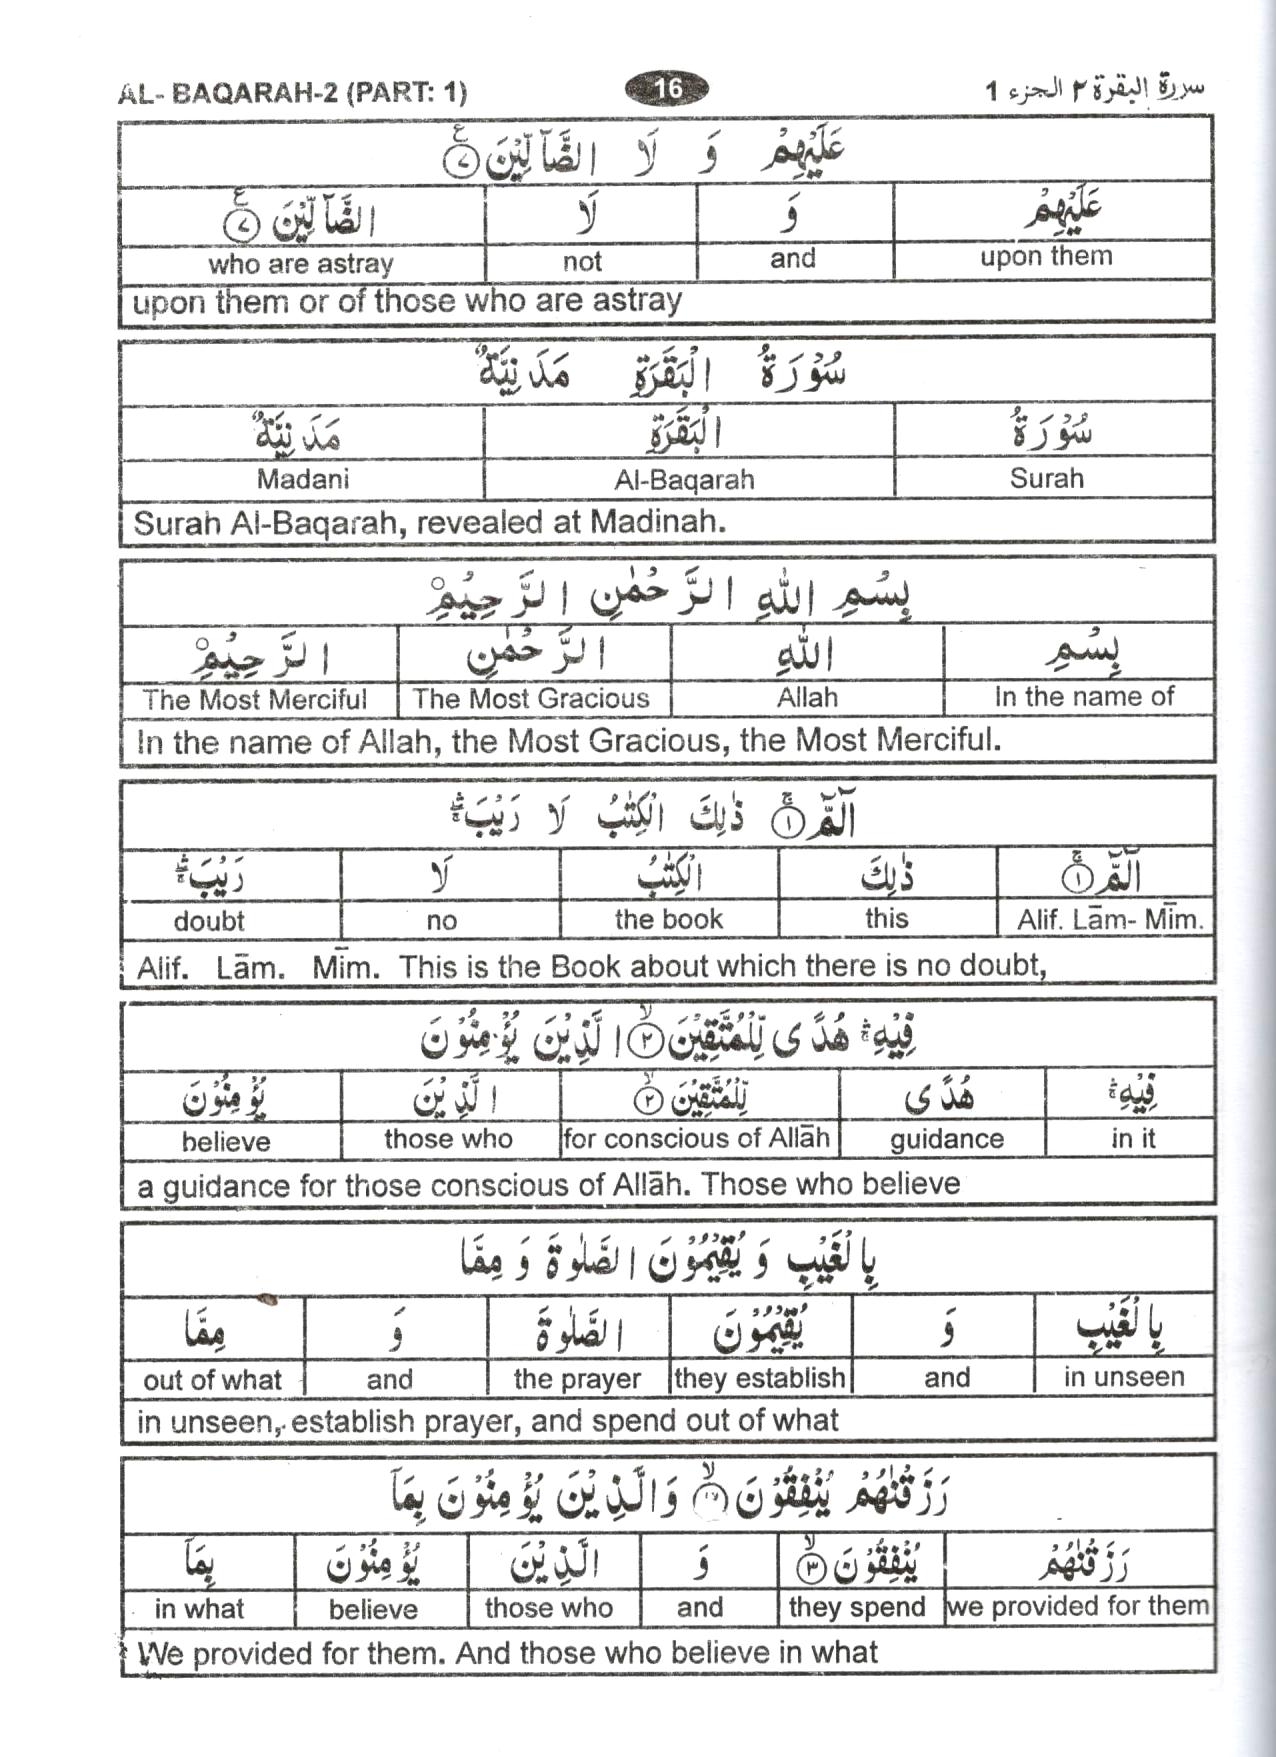 AL- BAQARAH-2 (PART: 1) 16 سورة البقرة ٢ الجزء 1
عَلَيْهِمْ وَ لَا الضَّآلِّيْنَ ۧ﴿٧﴾
عَلَيْهِمْ وَ لَا الضَّآلِّيْنَ ۧ﴿٧﴾
upon them and not who are astray
upon them or of those who are astray
سُوْرَةُ الْبَقَرَةِ مَدَنِيَّةٌ
سُوْرَةُ الْبَقَرَةِ مَدَنِيَّةٌ
Surah Al-Baqarah Madani
Surah Al-Baqarah, revealed at Madinah.
بِسْمِ اللّٰهِ الرَّحْمٰنِ الرَّحِيْمِ○
بِسْمِ اللّٰهِ الرَّحْمٰنِ الرَّحِيْمِ○
In the name of Allah The Most Gracious The Most Merciful
In the name of Allah, the Most Gracious, the Most Merciful.
الٓمّٓ ۚ﴿١﴾ ذٰلِكَ الْكِتٰبُ لَا رَيْبَ ۛۖۚ
الٓمّٓ ۚ﴿١﴾ ذٰلِكَ الْكِتٰبُ لَا رَيْبَ ۛۖۚ
Alif. Lām- Mīm. this the book no doubt
Alif. Lām. Mīm. This is the Book about which there is no doubt,
فِيْهِ ۛۚ هُدًى لِّلْمُتَّقِيْنَ ۙ﴿٢﴾ الَّذِيْنَ يُؤْمِنُوْنَ
فِيْهِ ۛۚ هُدًى لِّلْمُتَّقِيْنَ ۙ﴿٢﴾ الَّذِيْنَ يُؤْمِنُوْنَ
in it guidance for conscious of Allāh those who believe
a guidance for those conscious of Allāh. Those who believe
بِالْغَيْبِ وَ يُقِيْمُوْنَ الصَّلٰوةَ وَ مِمَّا
بِالْغَيْبِ وَ يُقِيْمُوْنَ الصَّلٰوةَ وَ مِمَّا
in unseen and they establish the prayer and out of what
in unseen, establish prayer, and spend out of what
رَزَقْنٰهُمْ يُنْفِقُوْنَ ۙ وَالَّذِيْنَ يُؤْمِنُوْنَ بِمَآ
رَزَقْنٰهُمْ يُنْفِقُوْنَ ۙ﴿٣﴾ وَ الَّذِيْنَ يُؤْمِنُوْنَ بِمَآ
we provided for them they spend and those who believe in what
We provided for them. And those who believe in what